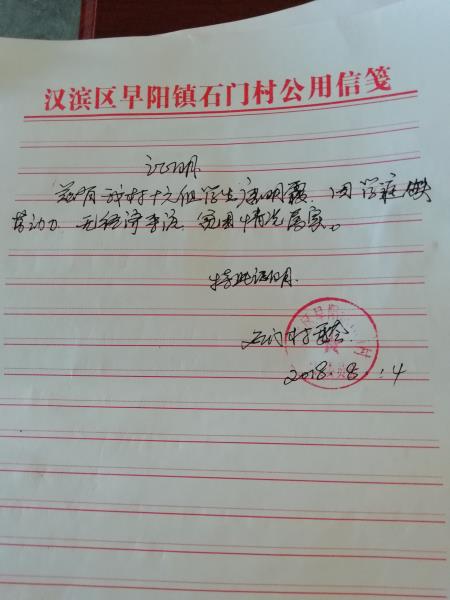 汉滨区早阳镇石门村公用信笺
证明
兹有我村十六组学生唐明霞,因学库缺
劳动力,无经济来源,贫困情况属实。
特此证明.
石门村委会
2018.8.14